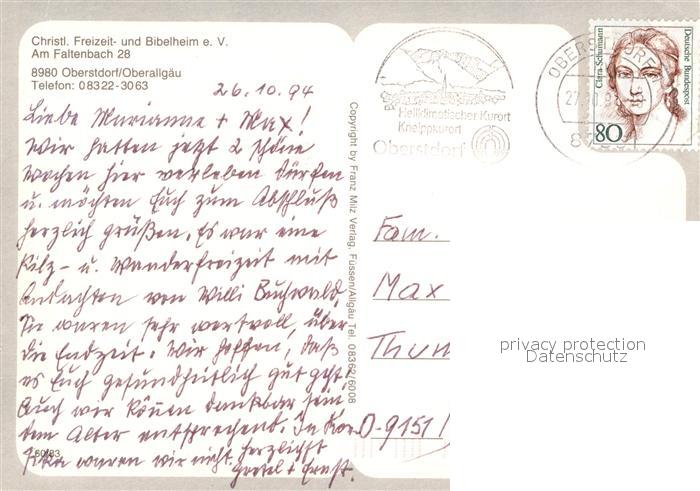 Christl. Freizeit- und Bibelheim e. V.
Am Faltenbach 28
8980 Oberstdorf/Oberallgäu
Telefon: 08322-3063
26.10.94
Liebe Marianne + Max!
Wir hatten jetzt 2 schöne
Wochen hier verleben dürfen
u. möchten Euch zum Abschluß
herzlich grüßen. Es war eine
Pilz- u. Wanderfreizeit mit
Andachten von Willi Buchwald.
Sie waren sehr wertvoll, über
die Endzeit. Wir hoffen, daß
es Euch gesundheitlich gut geht.
Auch wir können dankbar sein,
dem Alter entsprechend. In Kor-
sika waren wir nicht. Herzlichst
Gretel + Ernst.
60/83
Copyright by Franz Milz Verlag, Füssen/Allgäu Tel. 08362/6008
Heilklimatischer Kurort
Kneippkurort
Oberstdorf
OBERSTDORF
Clara Schumann
Deutsche Bundespost
80
Fam.
Max
Thum
D-9151
privacy protection
Datenschutz